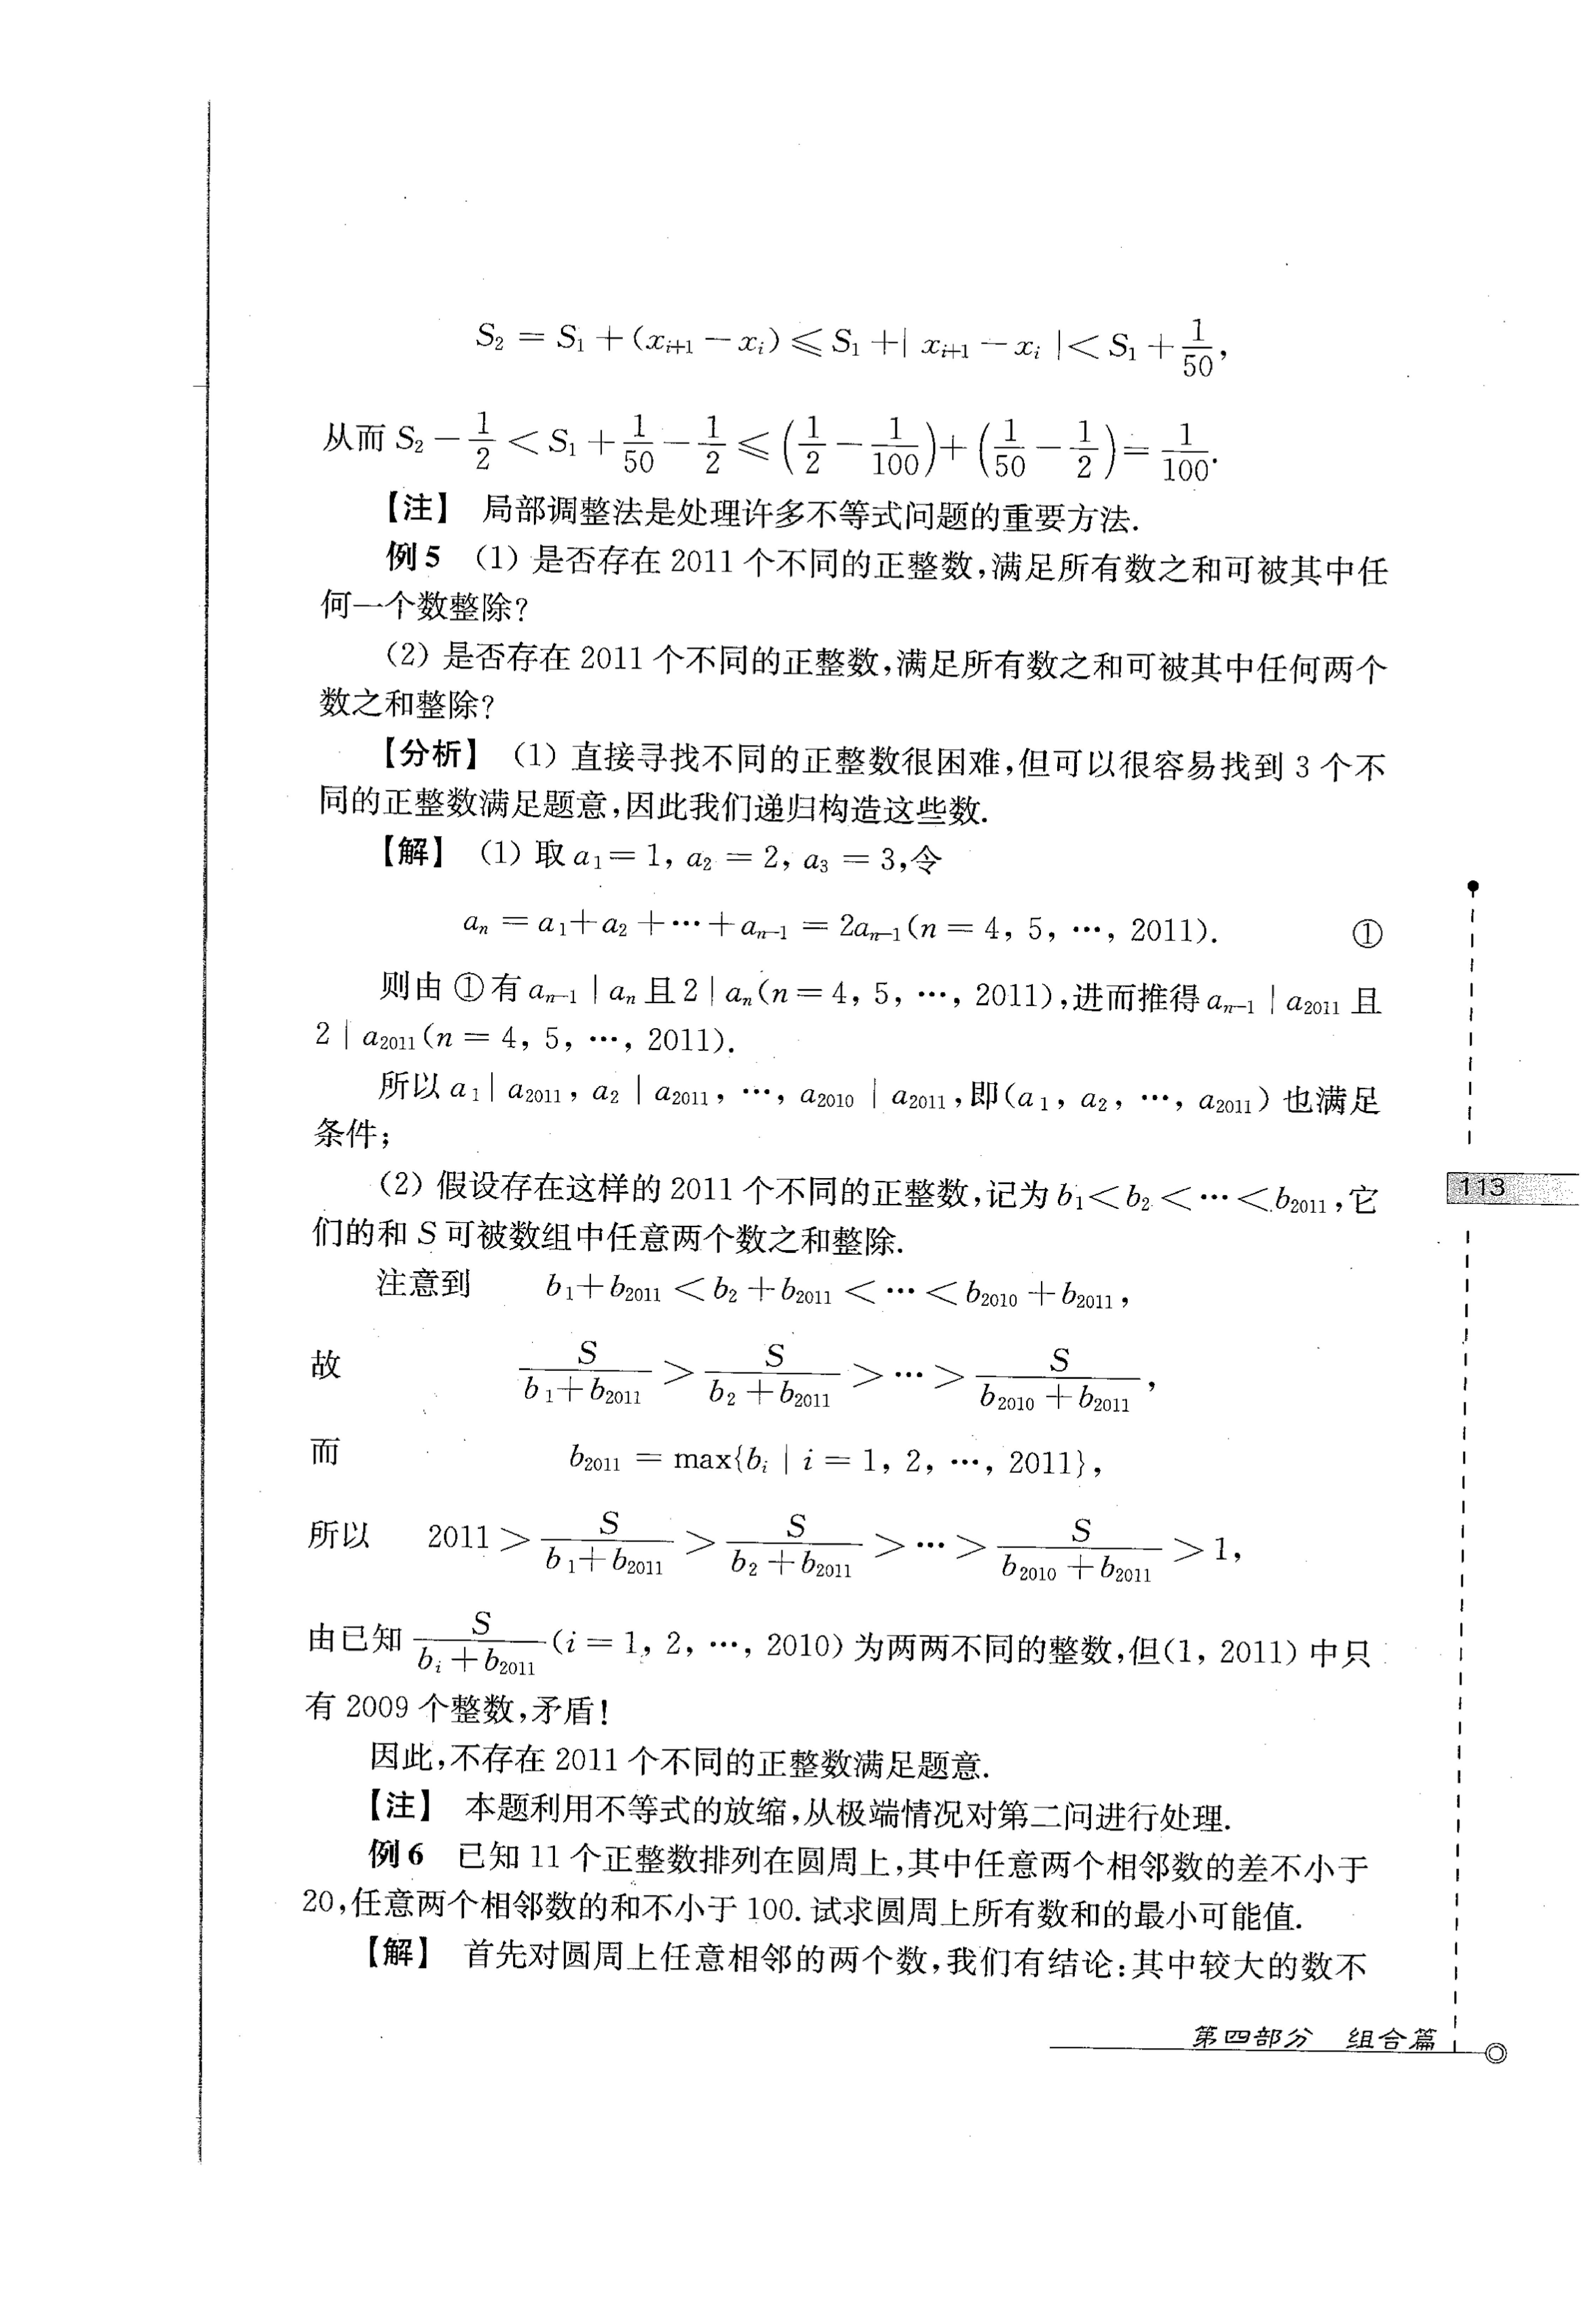 S₂ = S₁ + (xᵢ₊₁ − xᵢ) ⩽ S₁ + | xᵢ₊₁ − xᵢ | < S₁ + 1/50,
从而 S₂ − 1/2 < S₁ + 1/50 − 1/2 ⩽ (1/2 − 1/100) + (1/50 − 1/2) = 1/100.
【注】 局部调整法是处理许多不等式问题的重要方法.
例 5 (1) 是否存在 2011 个不同的正整数,满足所有数之和可被其中任
何一个数整除?
(2) 是否存在 2011 个不同的正整数,满足所有数之和可被其中任何两个
数之和整除?
【分析】 (1) 直接寻找不同的正整数很困难,但可以很容易找到 3 个不
同的正整数满足题意,因此我们递归构造这些数.
【解】 (1) 取 a₁ = 1, a₂ = 2, a₃ = 3,令
aₙ = a₁ + a₂ + ⋯ + aₙ₋₁ = 2aₙ₋₁ (n = 4, 5, ⋯, 2011). ①
则由 ① 有 aₙ₋₁ | aₙ 且 2 | aₙ (n = 4, 5, ⋯, 2011),进而推得 aₙ₋₁ | a₂₀₁₁ 且
2 | a₂₀₁₁ (n = 4, 5, ⋯, 2011).
所以 a₁ | a₂₀₁₁, a₂ | a₂₀₁₁, ⋯, a₂₀₁₀ | a₂₀₁₁,即(a₁, a₂, ⋯, a₂₀₁₁) 也满足
条件;
(2) 假设存在这样的 2011 个不同的正整数,记为 b₁ < b₂ < ⋯ < b₂₀₁₁,它
们的和 S 可被数组中任意两个数之和整除.
注意到 b₁ + b₂₀₁₁ < b₂ + b₂₀₁₁ < ⋯ < b₂₀₁₀ + b₂₀₁₁,
故 S/(b₁ + b₂₀₁₁) > S/(b₂ + b₂₀₁₁) > ⋯ > S/(b₂₀₁₀ + b₂₀₁₁),
而 b₂₀₁₁ = max{bᵢ | i = 1, 2, ⋯, 2011},
所以 2011 > S/(b₁ + b₂₀₁₁) > S/(b₂ + b₂₀₁₁) > ⋯ > S/(b₂₀₁₀ + b₂₀₁₁) > 1,
由已知 S/(bᵢ + b₂₀₁₁) (i = 1, 2, ⋯, 2010) 为两两不同的整数,但(1, 2011) 中只
有 2009 个整数,矛盾!
因此,不存在 2011 个不同的正整数满足题意.
【注】 本题利用不等式的放缩,从极端情况对第二问进行处理.
例 6 已知 11 个正整数排列在圆周上,其中任意两个相邻数的差不小于
20,任意两个相邻数的和不小于 100. 试求圆周上所有数和的最小可能值.
【解】 首先对圆周上任意相邻的两个数,我们有结论:其中较大的数不
113
第四部分 组合篇